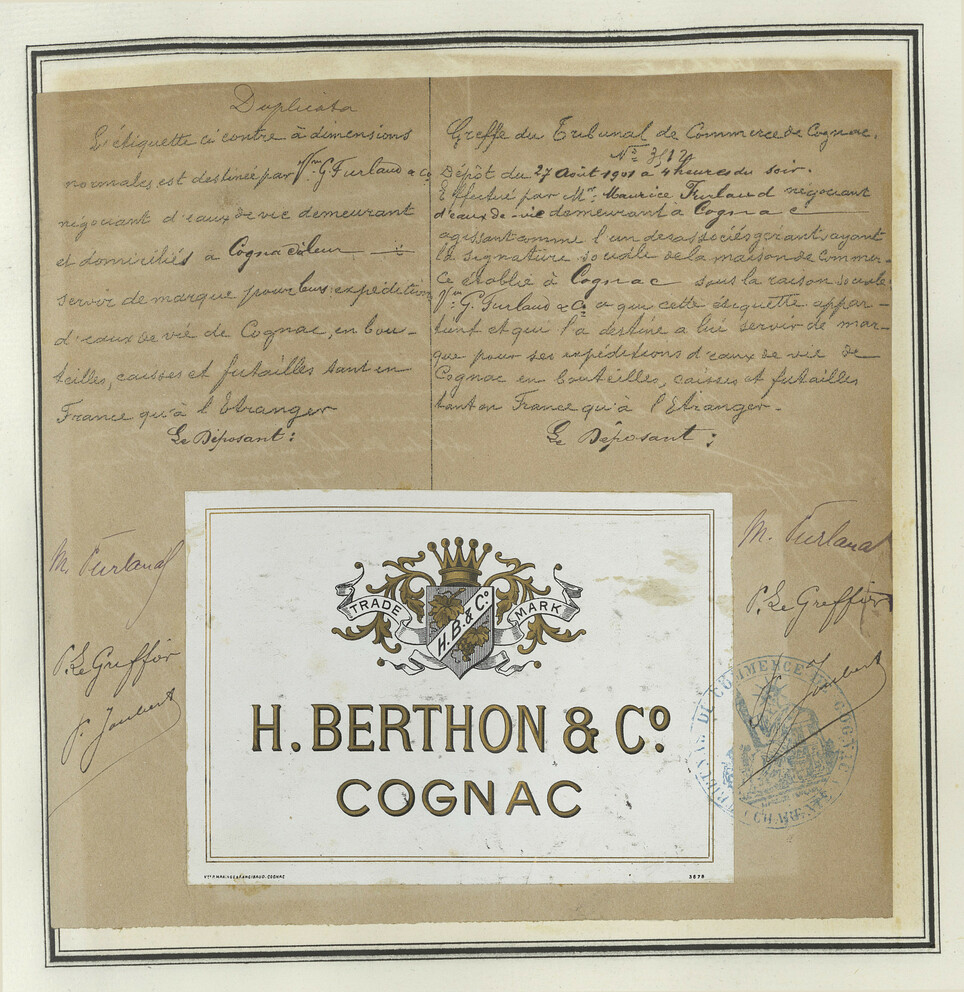 Duplicata
L'étiquette ci contre à dimensions
normales est destinée par Vve G. Furlaud & Co
négociant d'eaux de vie demeurant
et domiciliés à Cognac à leur
servir de marque pour leurs expéditions
d'eaux de vie de Cognac, en bou-
teilles, caisses et futailles tant en
France qu'à l'Etranger
Le Déposant :
M. Furlaud
P. Le Greffier
P. Joubert
Greffe du Tribunal de Commerce de Cognac.
No
Dépôt du 27 Août 1901 à 4 heures du soir.
Effectué par Mr. Maurice Furlaud négociant
d'eaux-de-vie demeurant à Cognac
agissant comme l'un des associés gérants, ayant
la signature sociale de la maison de Commer-
ce établie à Cognac sous la raison sociale
Vve G. Furlaud & Co a que cette étiquette appar-
tient et qui l'a destiné a lui servir de mar-
que pour ses expéditions d'eaux de vie de
Cognac en bouteilles, caisses et futailles
tant en France qu'à l'Etranger.
Le Déposant :
M. Furlaud
P. Le Greffier
P. Joubert
TRIBUNAL DE COMMERCE DE COGNAC
TRADE MARK
H.B. & Co.
H. BERTHON & Co
COGNAC
COGNAC
3679